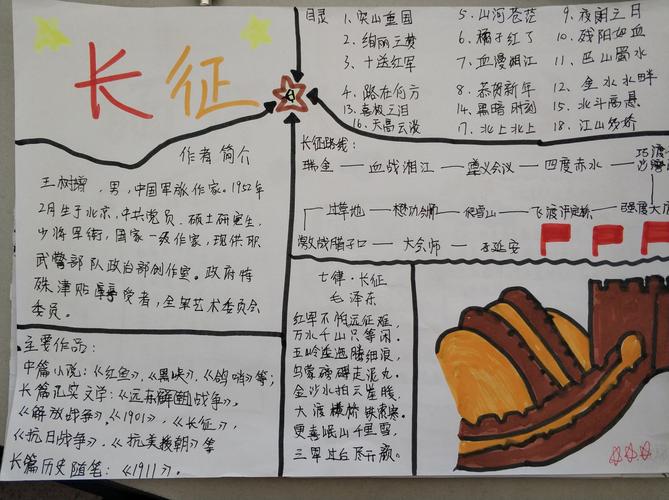 长征
作者简介
王树增,男,中国军旅作家。1952年
2月生于北京,中共党员、硕士研究生,
少将军衔,国家一级作家,现供职
武警部队政治部创作室。政府特
殊津贴享受者,全军艺术委员会
委员。
主要作品:
中篇小说:《红鱼》、《黑峡》、《鸽哨》等;
长篇纪实文学:《远东朝鲜战争》,
《解放战争》、《1901》、《长征》,
《抗日战争》、《抗美援朝》等
长篇历史随笔:《1911》。
目录
1、突山重围
2、绚丽之梦
3、十送红军
4、路在何方
13、喜极之泪
16、天高云淡
5、山河苍茫
6、橘子红了
7、血漫湘江
8、恭贺新年
14、黑暗时刻
17、北上北上
9、夜阑三日
10、残阳如血
11、巴山蜀水
12、金水水畔
15、北斗高悬
18、江山多娇
长征路线:
瑞金—血战湘江—遵义会议—四度赤水—巧渡
过草地—懋功会师—爬雪山—飞渡泸定桥—强渡大
激战腊子口—大会师—到延安
七律·长征
毛泽东
红军不怕远征难,
万水千山只等闲。
五岭逶迤腾细浪,
乌蒙磅礴走泥丸。
金沙水拍云崖暖,
大渡横桥铁索寒。
更喜岷山千里雪,
三军过后尽开颜。